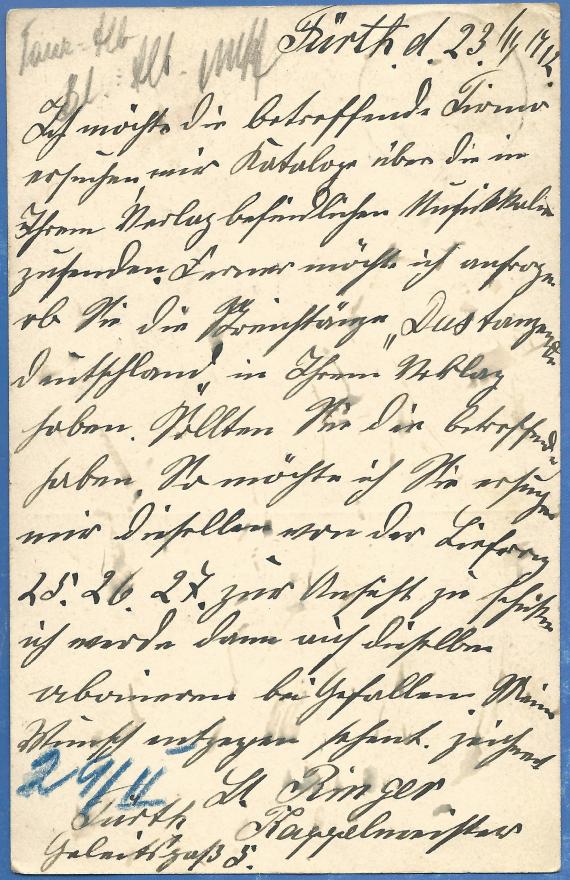 Tanz-Alb
Bl. Alb.
Fürth. d. 23./11 1912.
Ich möchte die betreffende Firma
ersuchen, mir Kataloge über die in
Ihrem Verlag befindlichen Musikalin
zusenden. Ferner möchte ich anfrage
ob Sie die "Das tanzende
Deutschland" in Ihrem Verklag
haben. Sollten Sie die betreffende
haben. So möchte ich Sie ersuchen
mir dieselben von der Liefrong
25. 26. 27. zur Ansicht zu schicken
ich werde dann auch dieselben
abonieren bei Gefallen. Mein
Wunsch entgegen sehent. zeichnet
29/II
Ringer
Fürth Kappelmeister
5.